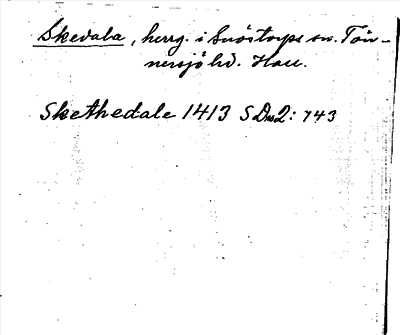 Skevala, herrg. i Snöstorps sn. Tön-
nersjö hd. Hall.
Skethedale 1413 SDns2: 743